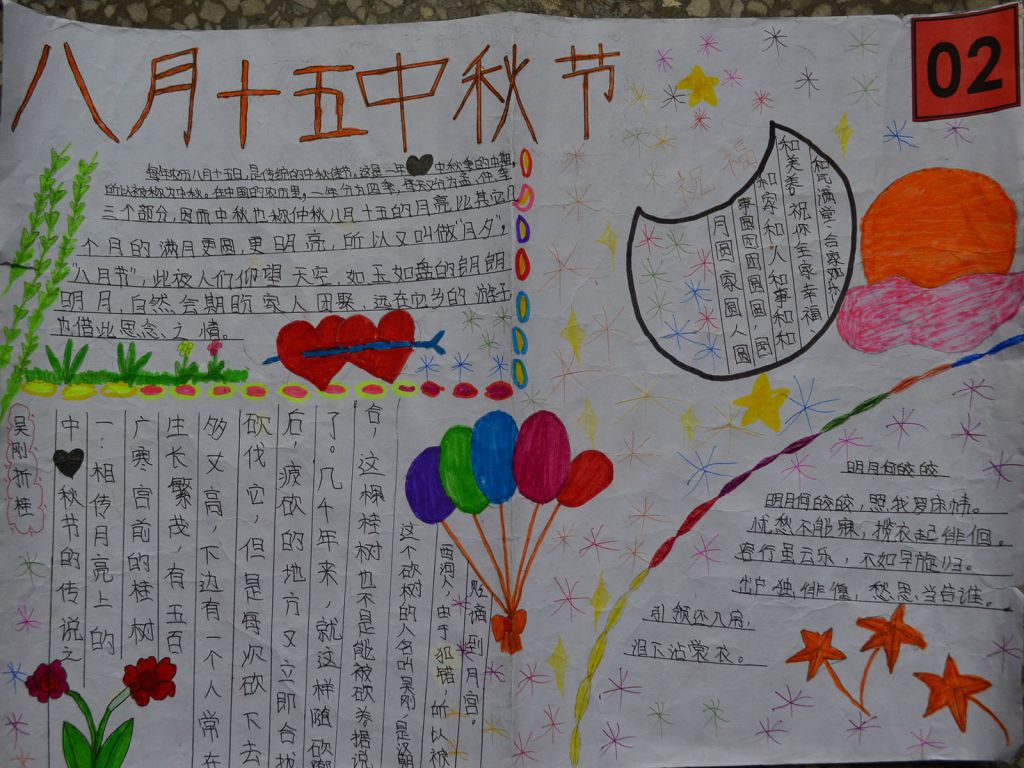 八月十五中秋节
02
每年农历八月十五日，是传统的中秋佳节。这是一年 中秋季的中期，
所以被称为中秋。在中国的农历里，一年分为四季，每季又分为孟、仲、季
三个部分，因而中秋也称仲秋八月十五的月亮比其它几
个月的满月更圆，更明亮，所以又叫做"月夕"，
"八月节"，此夜人们仰望天空，如玉如盘的朗朗
明月，自然会期盼家人团聚，远在他乡的游子
也借此思念之情。
祝福
和气满堂，合家欢
和美美 祝你全家幸福
和家和人和事和和
事圆团圆圆圆，图
月圆家圆人圆
吴刚折桂
中 秋节的传说之
一：相传月亮上的
广寒宫前的桂树
生长繁茂，有五百
多丈高，下边有一个人常在
砍伐它，但是每次砍下去
后，疲砍的地方又立即合拢
了。几千年来，就这样随砍随
合，这棵桂树也不是能被砍卷据说
这个砍树的人名叫吴刚，是汉朝
西河人，由于犯错，所以被
贬谪到月宫。
明月何皎皎
明月何皎皎，照我罗床帏。
忧愁不能寐，揽衣起徘徊。
客行虽云乐，不如早旋归。
出户独徘徊，愁思当告谁。
引领还入房，
泪下沾裳衣。